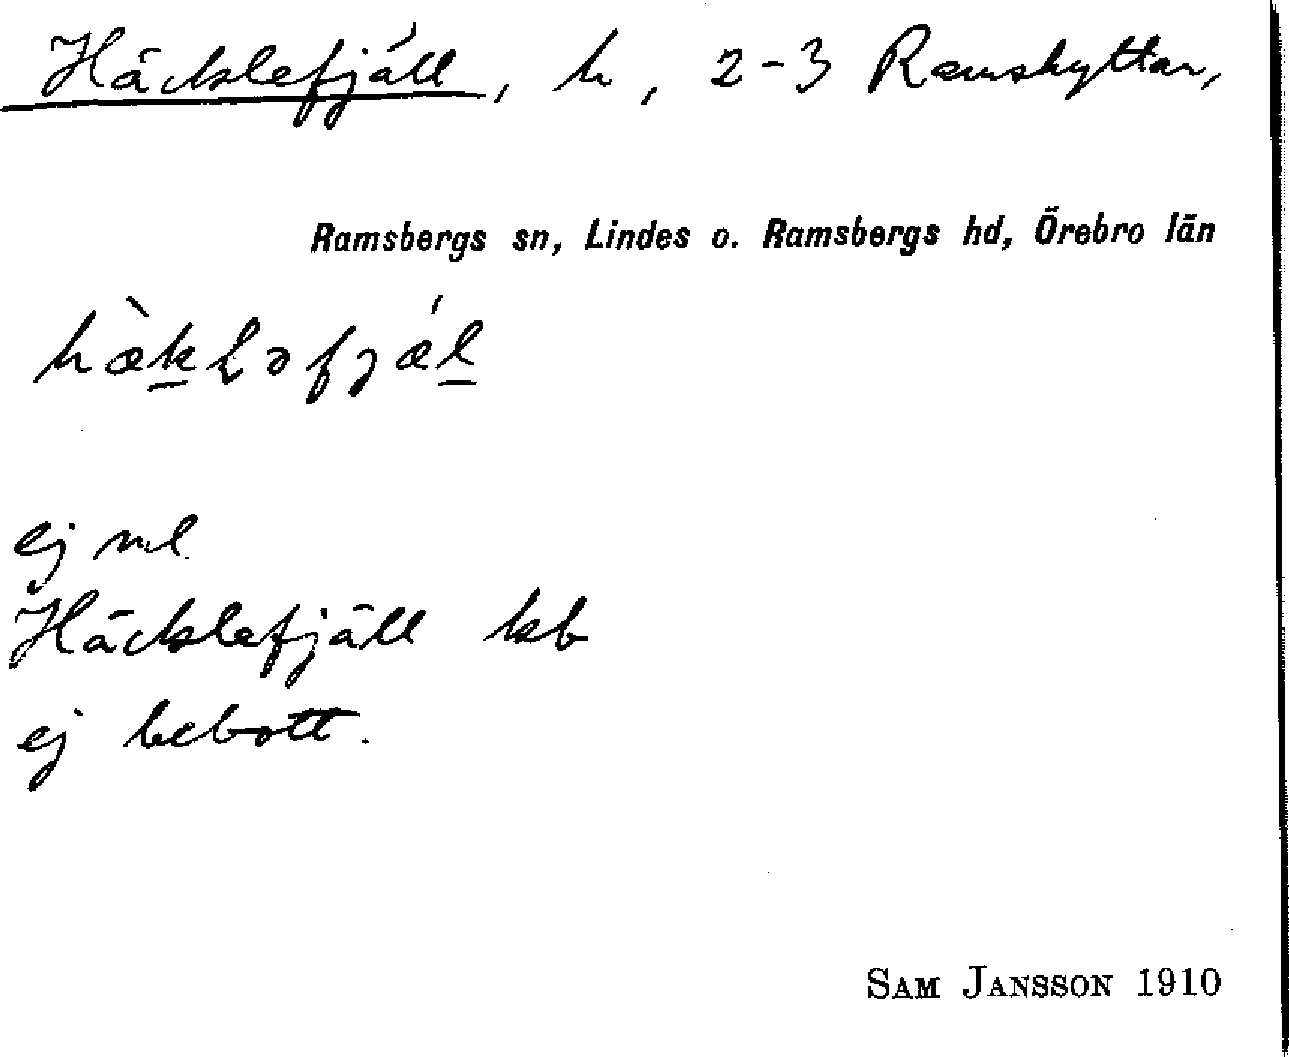 Häcklefjäll, h, 2-3 Ramshyttan,
Ramsbergs sn, Lindes o. Ramsbergs hd, Örebro län
hæ̀k̲Ləfjǽl̲
ej ml.
Häcklefjäll kb
ej bebott.
SAM JANSSON 1910